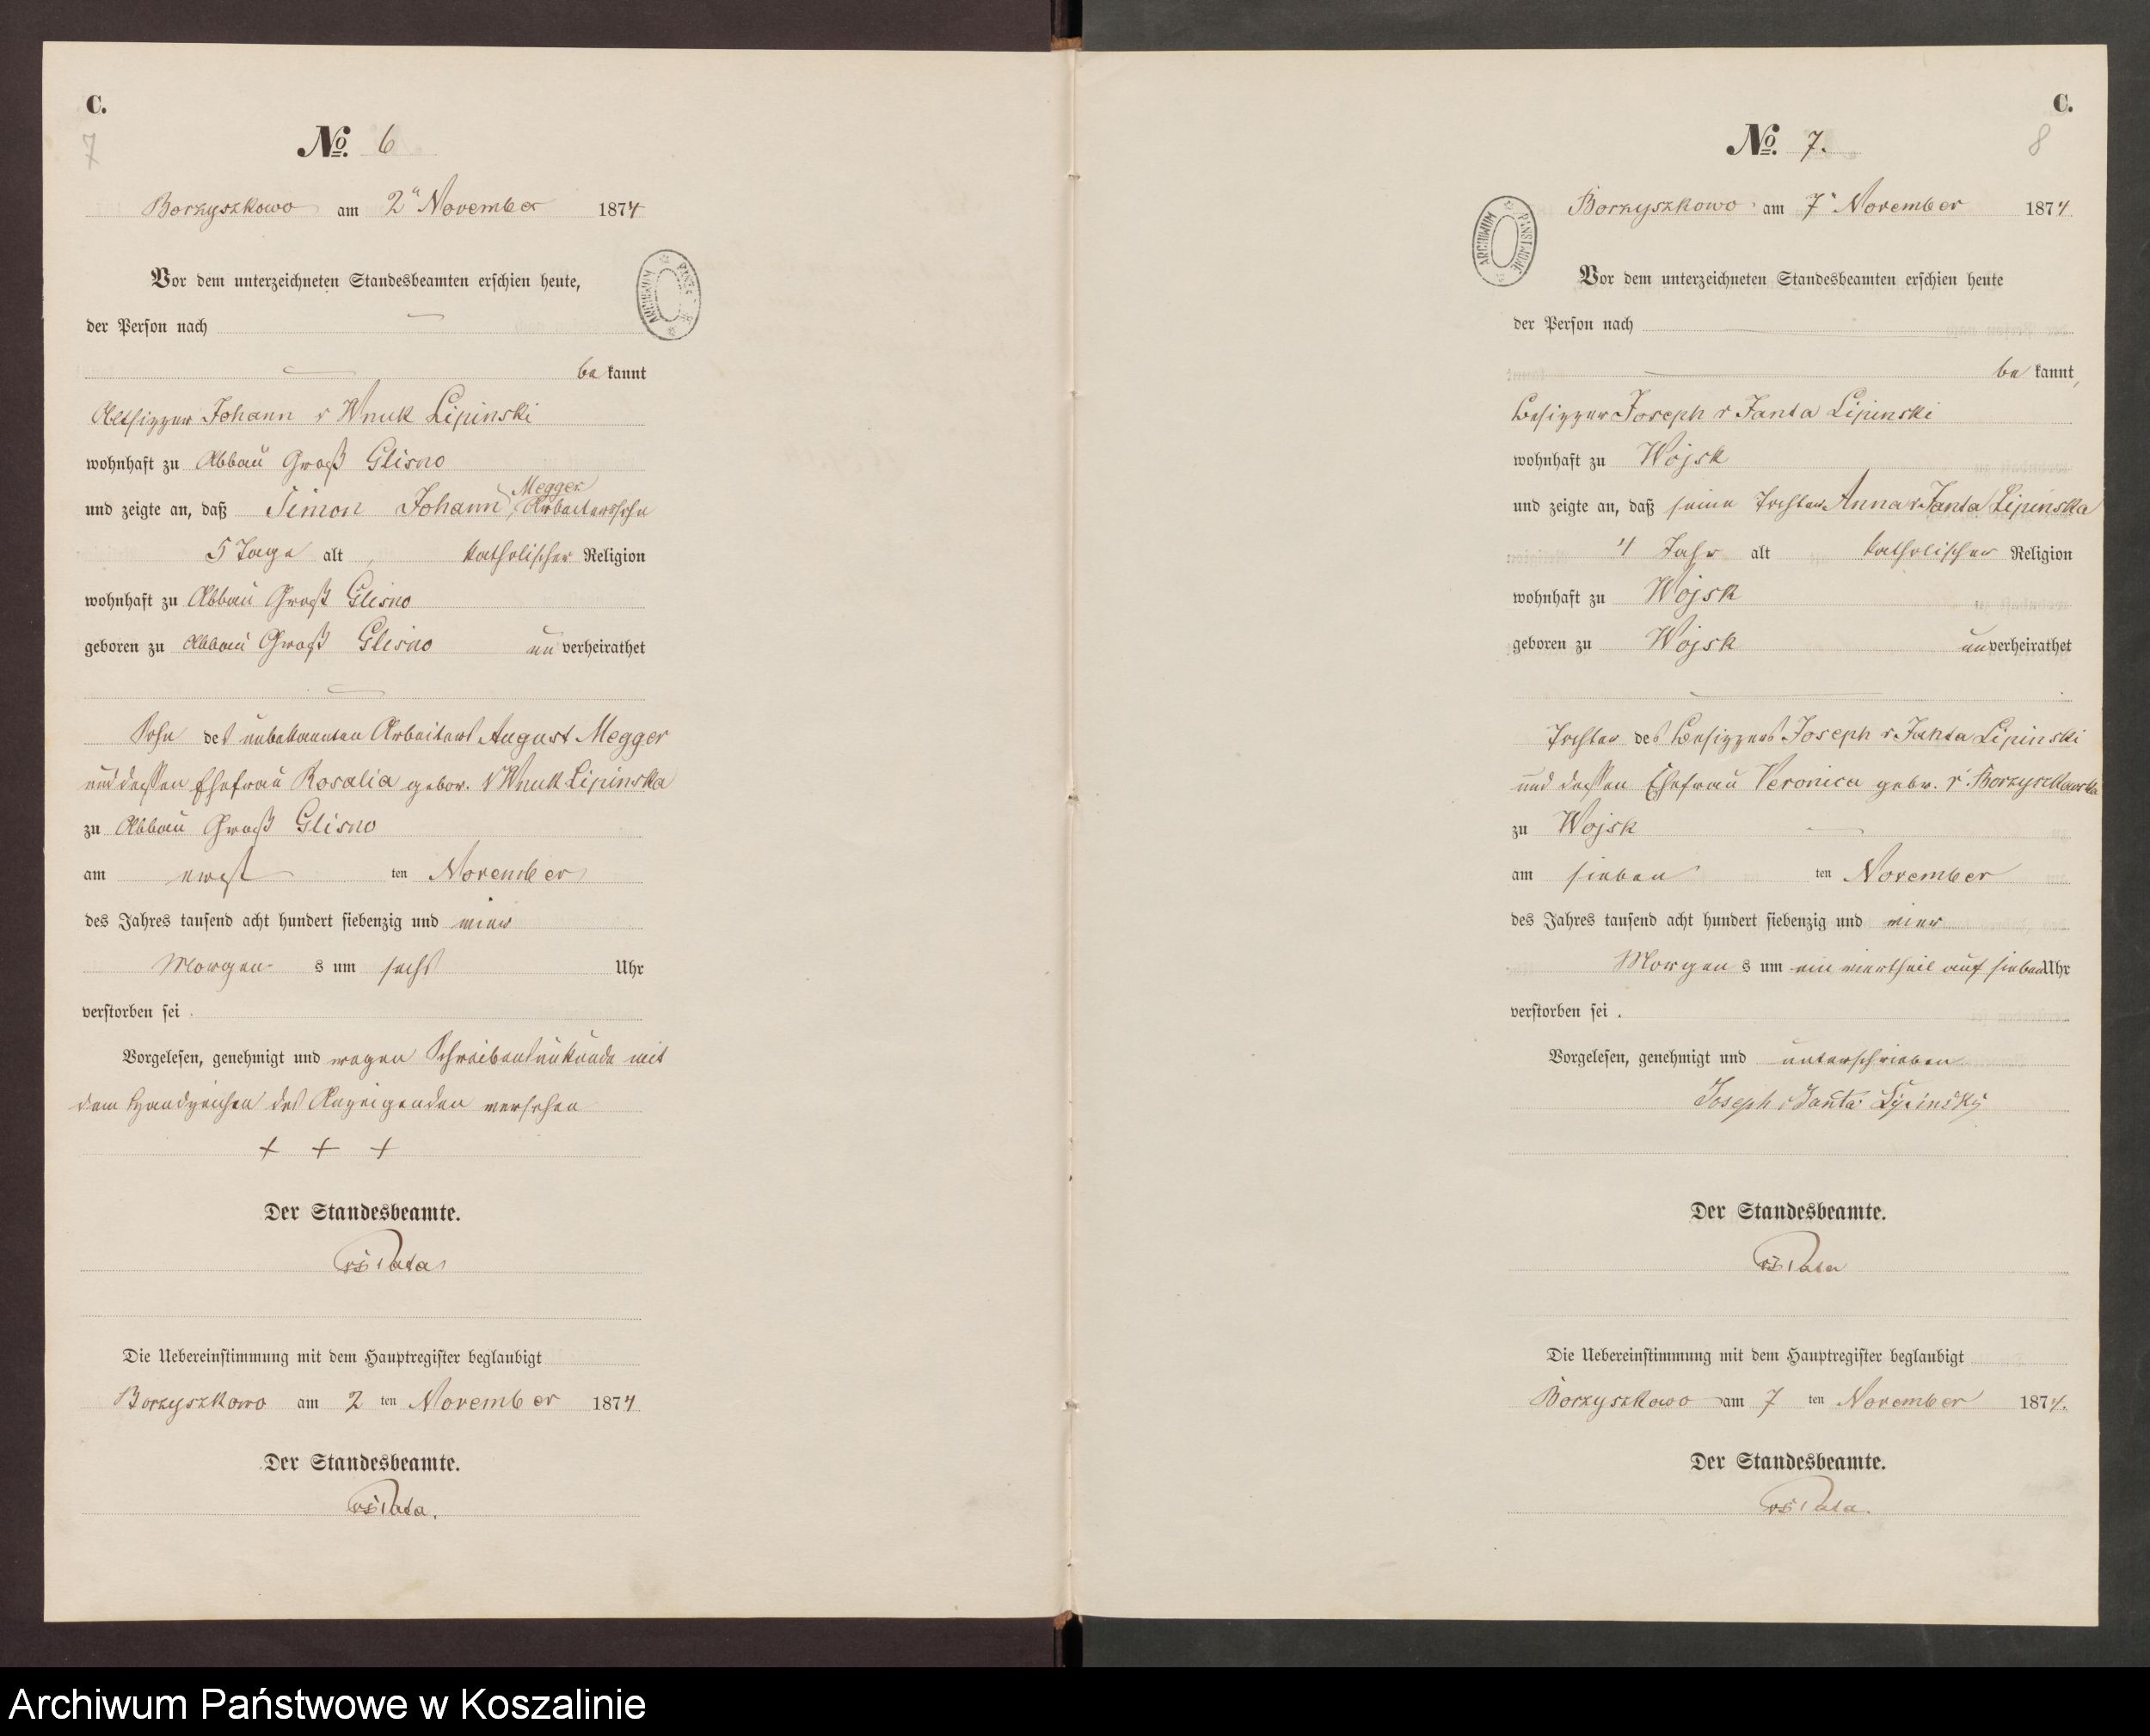 C.
7
No. 6
Borzyszkowo am 2n November 1874
Vor dem unterzeichneten Standesbeamten erschien heute,
der Person nach
be kannt
Altsitzer Johann v Wnuk Lipinski
wohnhaft zu Abbau Groß Glisno
und zeigte an, daß Simon Johann Megger, Arbeiterssohn
5 Tage alt, katholischer Religion
wohnhaft zu Abbau Groß Glisno
geboren zu Abbau Groß Glisno un verheirathet
Sohn des Arbeiters August Megger
und dessen Ehefrau Rosalia gebor. v Wnuk Lipinska
zu Abbau Groß Glisno
am ten November
des Jahres tausend acht hundert siebenzig und vier
Morgen s um sechs Uhr
verstorben sei.
Vorgelesen, genehmigt und wegen Schreibensunkunde mit
dem Handzeichen des Anzeigenden versehen
+ + +
Der Standesbeamte.
Die Uebereinstimmung mit dem Hauptregister beglaubigt
Borzyszkowo am 2 ten November 1874
Der Standesbeamte.
ARCHIWUM
C.
8
No. 7.
Borzyszkowo am 7n November 1874
Vor dem unterzeichneten Standesbeamten erschien heute
der Person nach
be kannt,
Besitzer Joseph v Janta Lipinski
wohnhaft zu Wojsk
und zeigte an, daß seine Tochter Anna v Janta Lipinska
4 Jahr alt katholischer Religion
wohnhaft zu Wojsk
geboren zu Wojsk un verheirathet
Tochter des Besitzers Joseph v Janta Lipinski
und dessen Ehefrau Veronica gebr. v Borzyszkowska
zu Wojsk
am sieben ten November
des Jahres tausend acht hundert siebenzig und vier
Morgen s um ein viertheil auf sieben Uhr
verstorben sei.
Vorgelesen, genehmigt und unterschrieben
Joseph v Janta Lypinsky
Der Standesbeamte.
Die Uebereinstimmung mit dem Hauptregister beglaubigt
Borzyszkowo am 7 ten November 1874.
Der Standesbeamte.
ARCHIWUM PAŃSTWOWE
Archiwum Państwowe w Koszalinie